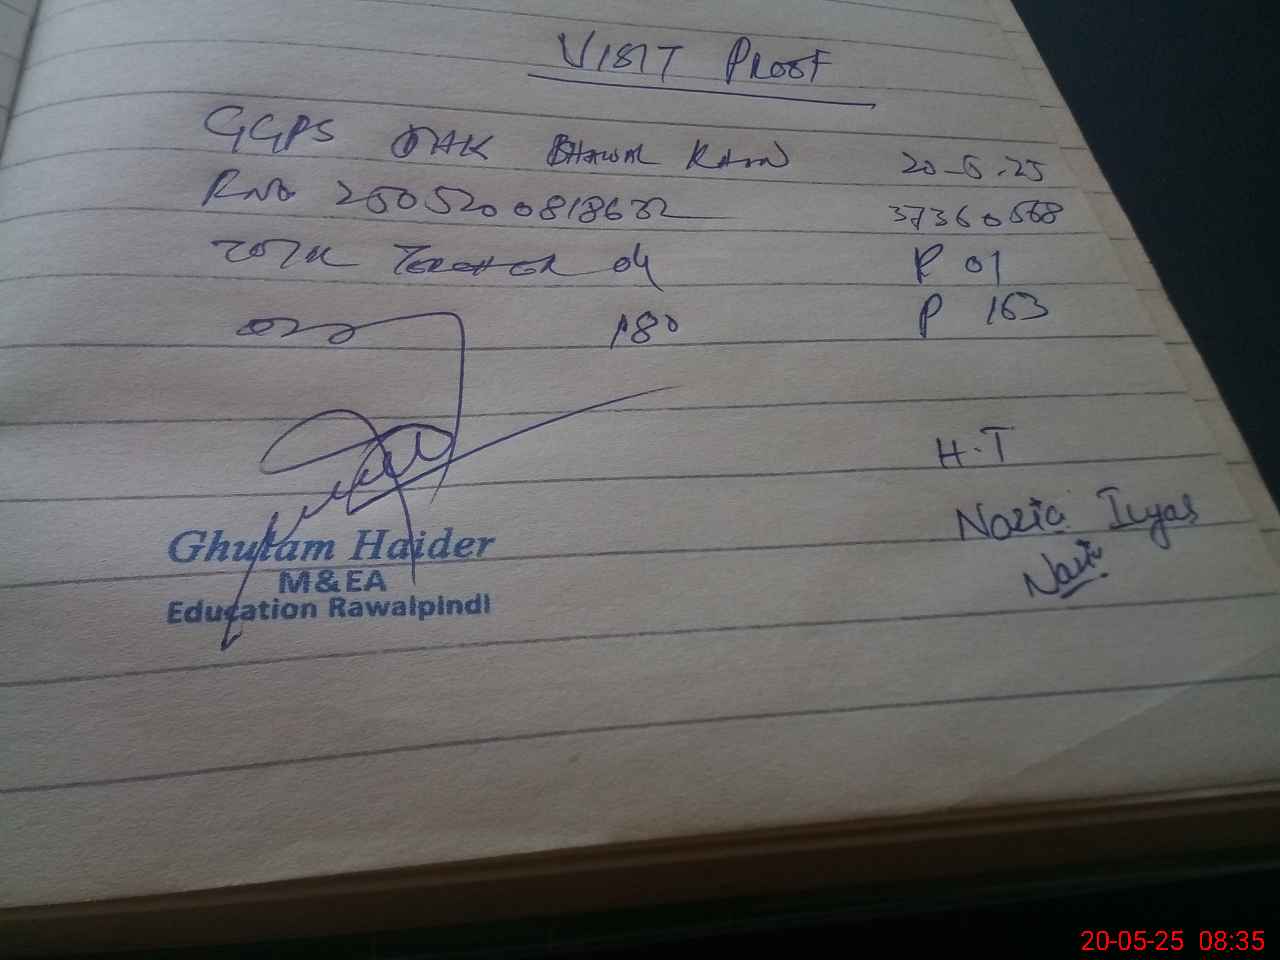 VISIT PROOF
GGPS DHK BHAWAL KHAN 20-5-25
RNO 2505200818632 37360568
TOTAL TEACHER 04 P 01
180 P 163
H.T
Nazia Ilyas
Nazia
Ghulam Haider
M&EA
Education Rawalpindi
20-05-25 08:35